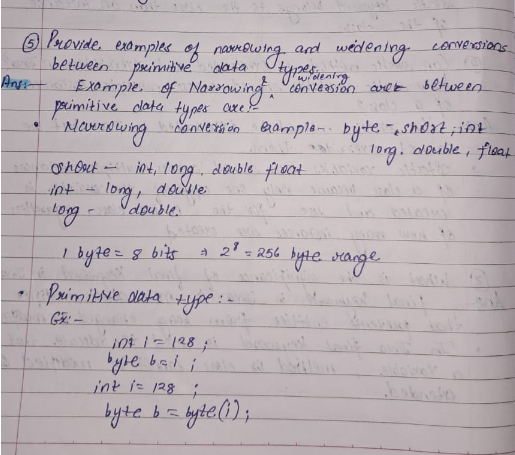 ⑤ Provide examples of narrowing and widening conversions
between primitive data types.
Ans:- Example of Narrowing & widening conversion are between
primitive data types are:-
• Narrowing conversion example- byte -, short, int
long, double, float
short - int, long, double float
int - long, double
long - double.
1 byte = 8 bits → 2⁸ = 256 byte range
• Primitive data type:-
Ex:-
int i = 128 ;
byte b = i ;
int i = 128 ;
byte b = byte(i);